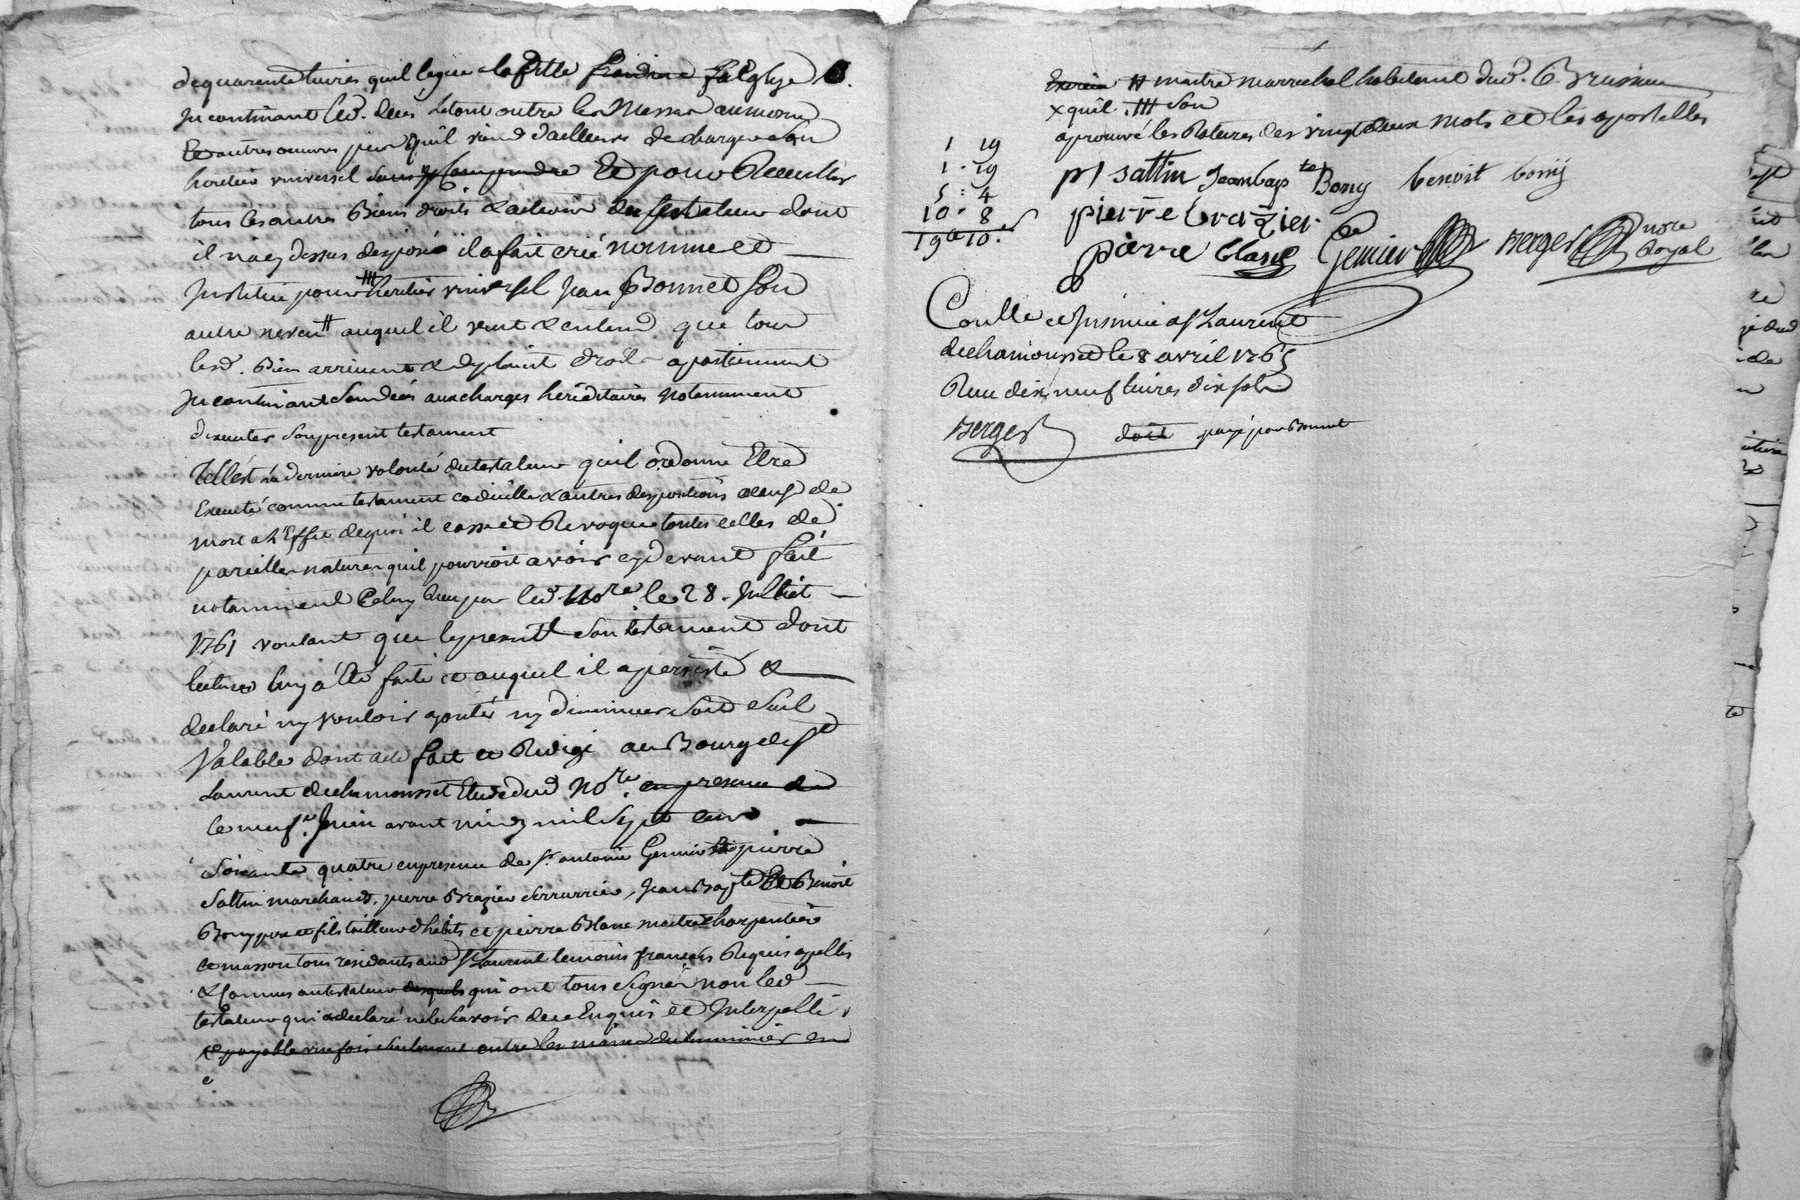 de quarente livres quil legue a la ditte
Incontinant led. deces et tout outre les Messes aumone
Et autres oeuvres pies quil viend d'ailleurs de charger son
heritier universel sans y comprendre Et pour Recuillir
tous les autres Biens droits & actions du testateur dont
il n'a cy dessus disposé il a fait créé nommé et
Institué pour # heritier universel Jean Bonnet son
autre neveu # auquel il veut & entend que tous
lesd. Bien arrivent & de plaint droit apartiennent
Incontinant son deces aux charges héréditaires notamment
d'executer son present testament
Telle est sa derniere volonté du testateur quil ordonne Etre
Executé comme testament codicille & autres dispositions a cause de
mort a L'Effet de quoi il casse et Revoque toutes celles de
pareilles natures quil pourroit avoir cydevant fait
notamment Celuy Receu par led. Nore le 28. Juillet
1761 voulant que le present son testament dont
lecture luy a été faite et auquel il a persisté &
declaré ny vouloir ajouter ny diminuer soit seul
Valable dont acte fait et Redigé au Bourg de St
Laurent de chamousset Etude dud Nore. en presence de
le neuf. Juin avant midy mil sept cent
Soixante quatre en presence de sr. antoine Gemier pierre
Sattin marchands, pierre Brazier serrurier, Jean Bapte Et Benoit
Bony pere et fils tailleur d'habits et pierre Blanc maitre charpentier
et masson tous residants aud St Laurent temoins français Requis apellés
& Connus au testateur desquels qui ont tous signé non led
testateur qui a declaré ne le savoir de ce Enquis et Interpellé
& payable une fois seulement entre les mains du luminier en
# maitre marrechal habitant dud.
x quil. ### son
aprouvé les Ratures des vingt deux mots et les apostilles
1 19
1 . 19
5 : 4
10 . 8
19 10
p sattin Jean bapte Bony benoit bony
pierre brazier
pierre blanc Gemier Berger nore Royal
Conllé et Insinué a St Laurent
de chamousset le 8 avril 1765
Reçu dix neuf livres dix sols
Berger doit payé par Bonnet